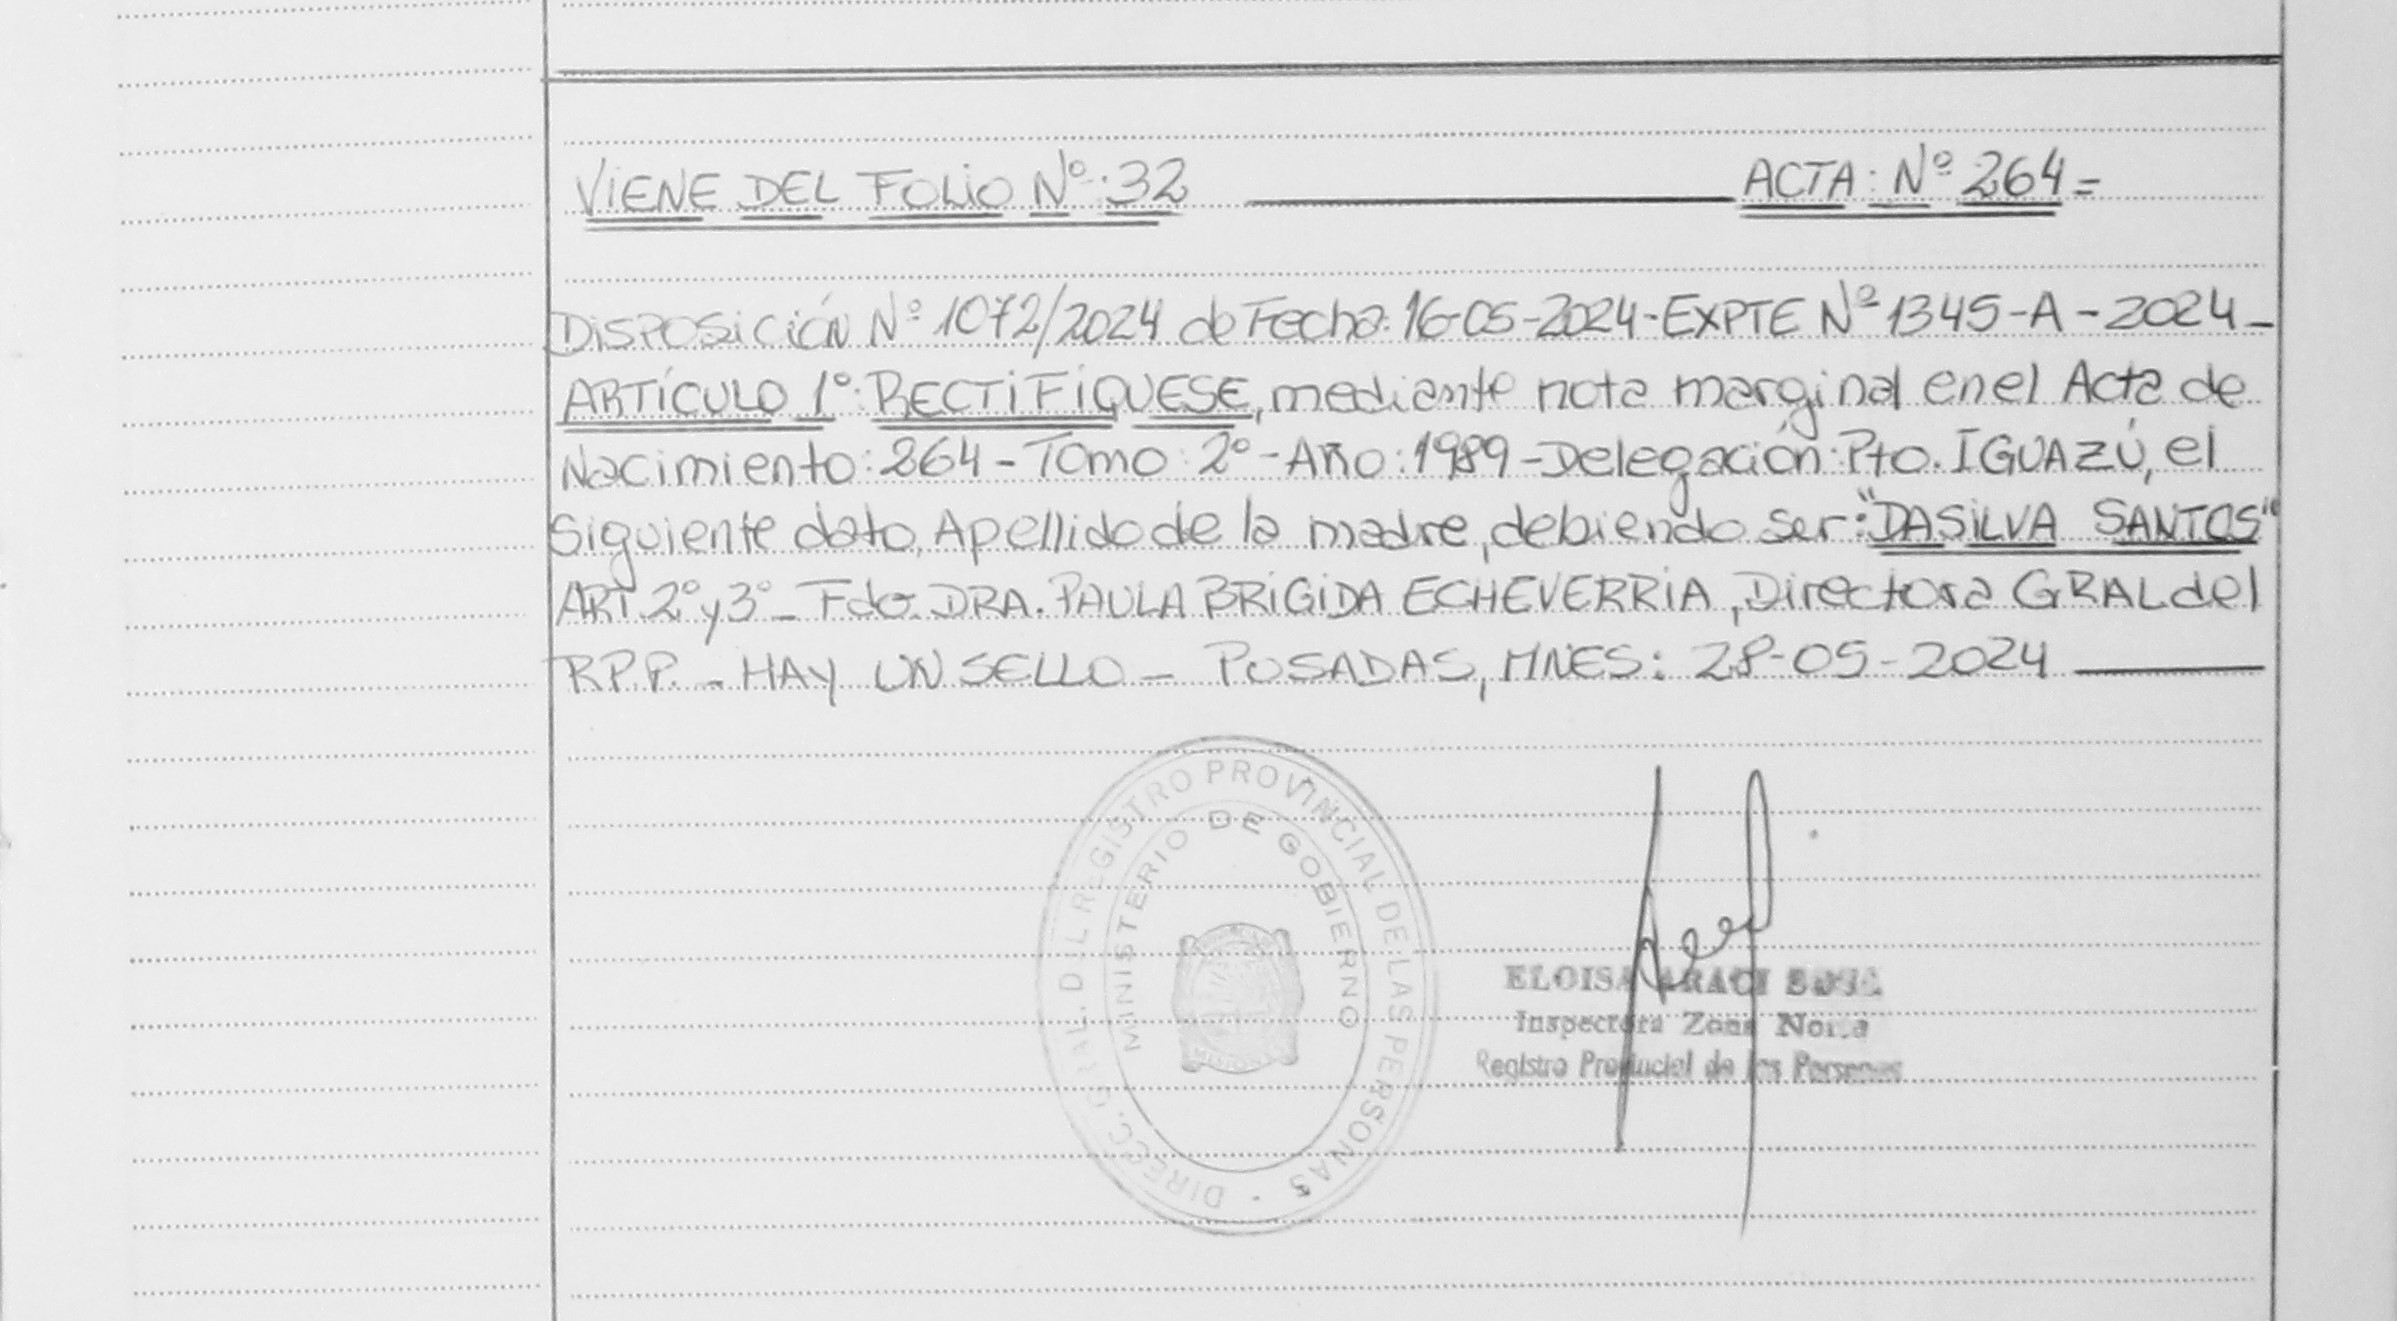 VIENE DEL FOLIO Nº: 32 ACTA: Nº 264=
DISPOSICIÓN Nº 1072/2024 de Fecha: 16-05-2024-EXPTE Nº 1345-A-2024-
ARTÍCULO 1°: RECTIFÍQUESE, mediante nota marginal en el Acta de
Nacimiento: 264-Tomo: 2°-Año: 1989-Delegación: Pto. IGUAZÚ, el
Siguiente dato, Apellido de la madre, debiendo ser: "DASILVA SANTOS"
ART. 2° y 3°- Fdo. DRA. PAULA BRIGIDA ECHEVERRIA, Directora GRAL del
R.P.P. - HAY UN SELLO - POSADAS, MNES: 28-05-2024
DIRECC. GRAL. DEL REGISTRO PROVINCIAL DE LAS PERSONAS
MINISTERIO DE GOBIERNO
MISIONES
ELOISA ARACI
Inspectora Zona Norte
Registro Provincial de las Personas